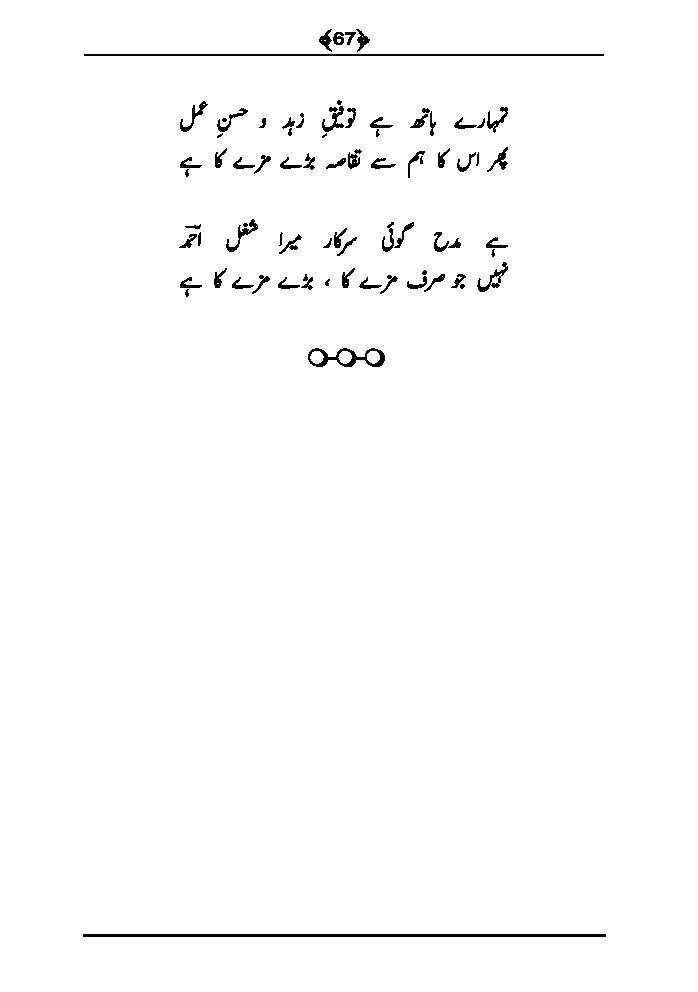 ﴿67﴾
تمہارے ہاتھ ہے توفیقِ زہد و حسنِ عمل
پھر اس کا ہم سے تقاصہ بڑے مزے کا ہے
ہے مدح گوئی سرکار میرا شغل احمدؔ
نہیں جو صرف مزے کا ، بڑے مزے کا ہے